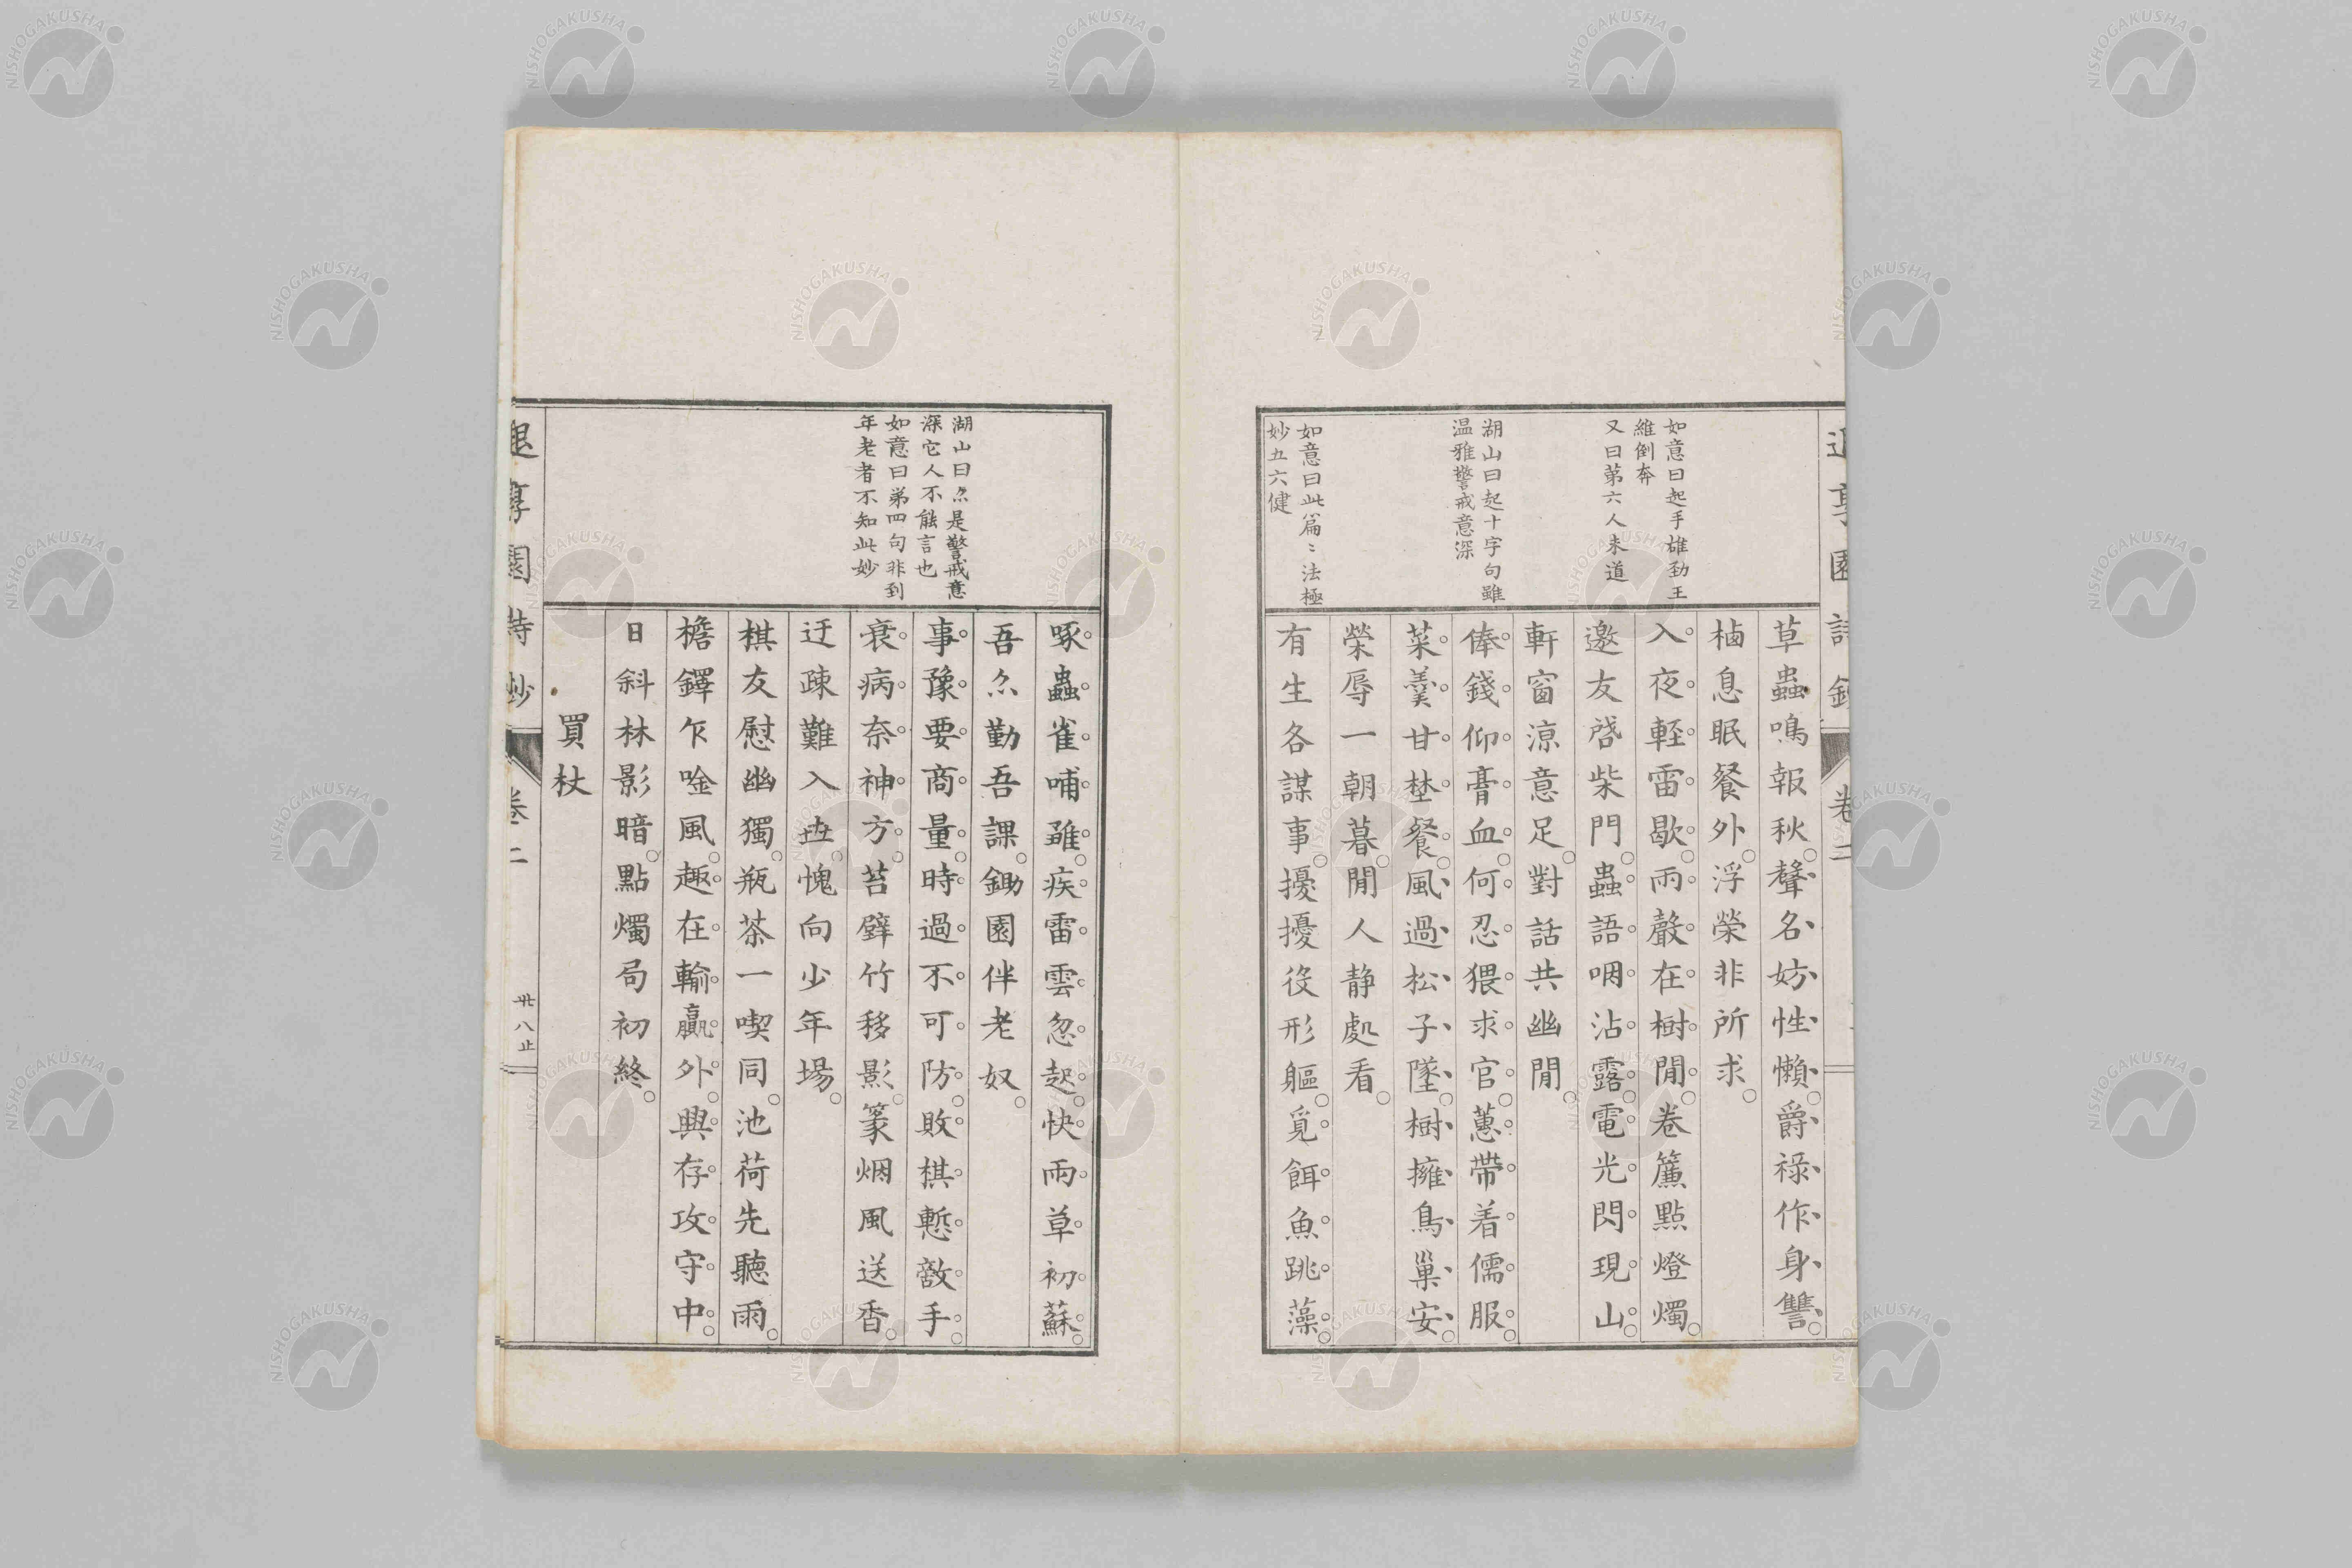 如意曰起手雄勁王
維倒奔
又曰第六人未道
湖山曰起十字句雖
温雅警戒意深
如意曰此篇〻法極
妙五六健
草蟲鳴報秋聲名妨性懶爵祿作身讐
樯息眠餐外浮榮非所求
入夜輕雷歇雨聲在樹間卷簾點燈燭
邀友啓柴門蟲語咽沾露電光閃現山
軒窗涼意足對話共幽閒
俸錢仰膏血何忍猥求官蕙帶着儒服
菜羹甘埜餐風過松子墜樹擁鳥巢安
榮辱一朝暮閒人静處看
有生各謀事擾擾役形軀覓餌魚跳藻
卷二
湖山曰尒是警戒意
深它人不能言也
如意曰第四句非到
年老者不知此妙
啄蟲雀哺雖疾雷雲忽起快雨草初蘇
吾尒勤吾課鋤園伴老奴
事豫要商量時過不可防敗棋慙敵手
衰病奈神方苔壁竹移影篆烟風送香
迂疎難入世愧向少年場
棋友慰幽獨瓶茶一喫同池荷先聽雨
檐鐸乍唫風趣在輸贏外興存攻守中
日斜林影暗點燭局初終
買杖
卷二
卅八止
NISHOGAKUSHA